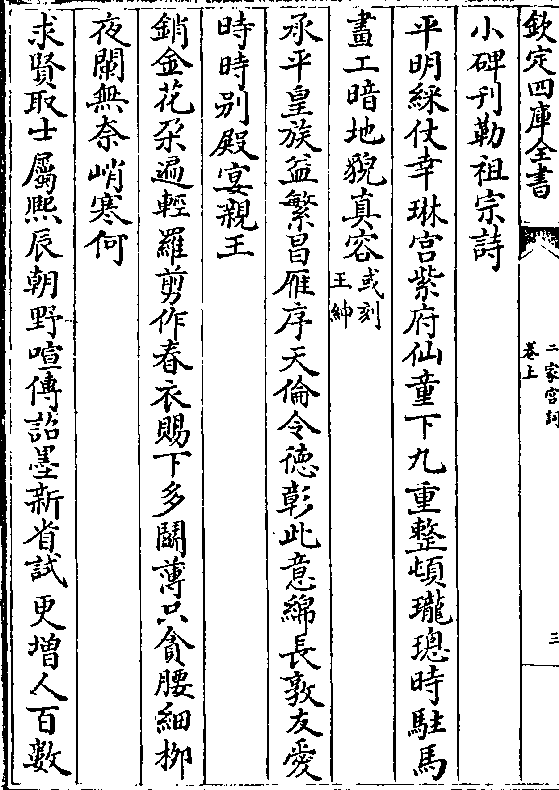 欽定四庫全書
二家宮詞
卷上
三
小碑刊勒祖宗詩
平明綵仗幸琳宮紫府仙童下九重整頓瓏璁時駐馬
畫工暗地貌真容或刻王紳
承平皇族益繁昌雁序天倫令德彰此意綿長敦友愛
時時别殿宴親王
銷金花朶遍輕羅剪作春衣賜下多鬬薄只貪腰細栁
夜闌無奈峭寒何
求賢取士屬熙辰朝野喧傳詔墨新省試更增人百數